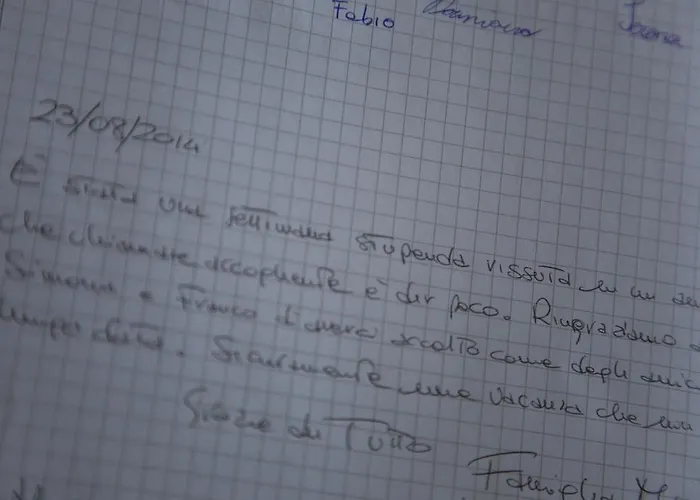 Fabio
23/08/2014
È stata una settimana stupenda vissuta in un
che chiamare accogliente è dir poco. Ringraziamo
Simona e Franco d'averci accolto come degli amici
. Sicuramente una vacanza che
Grazie di Tutto